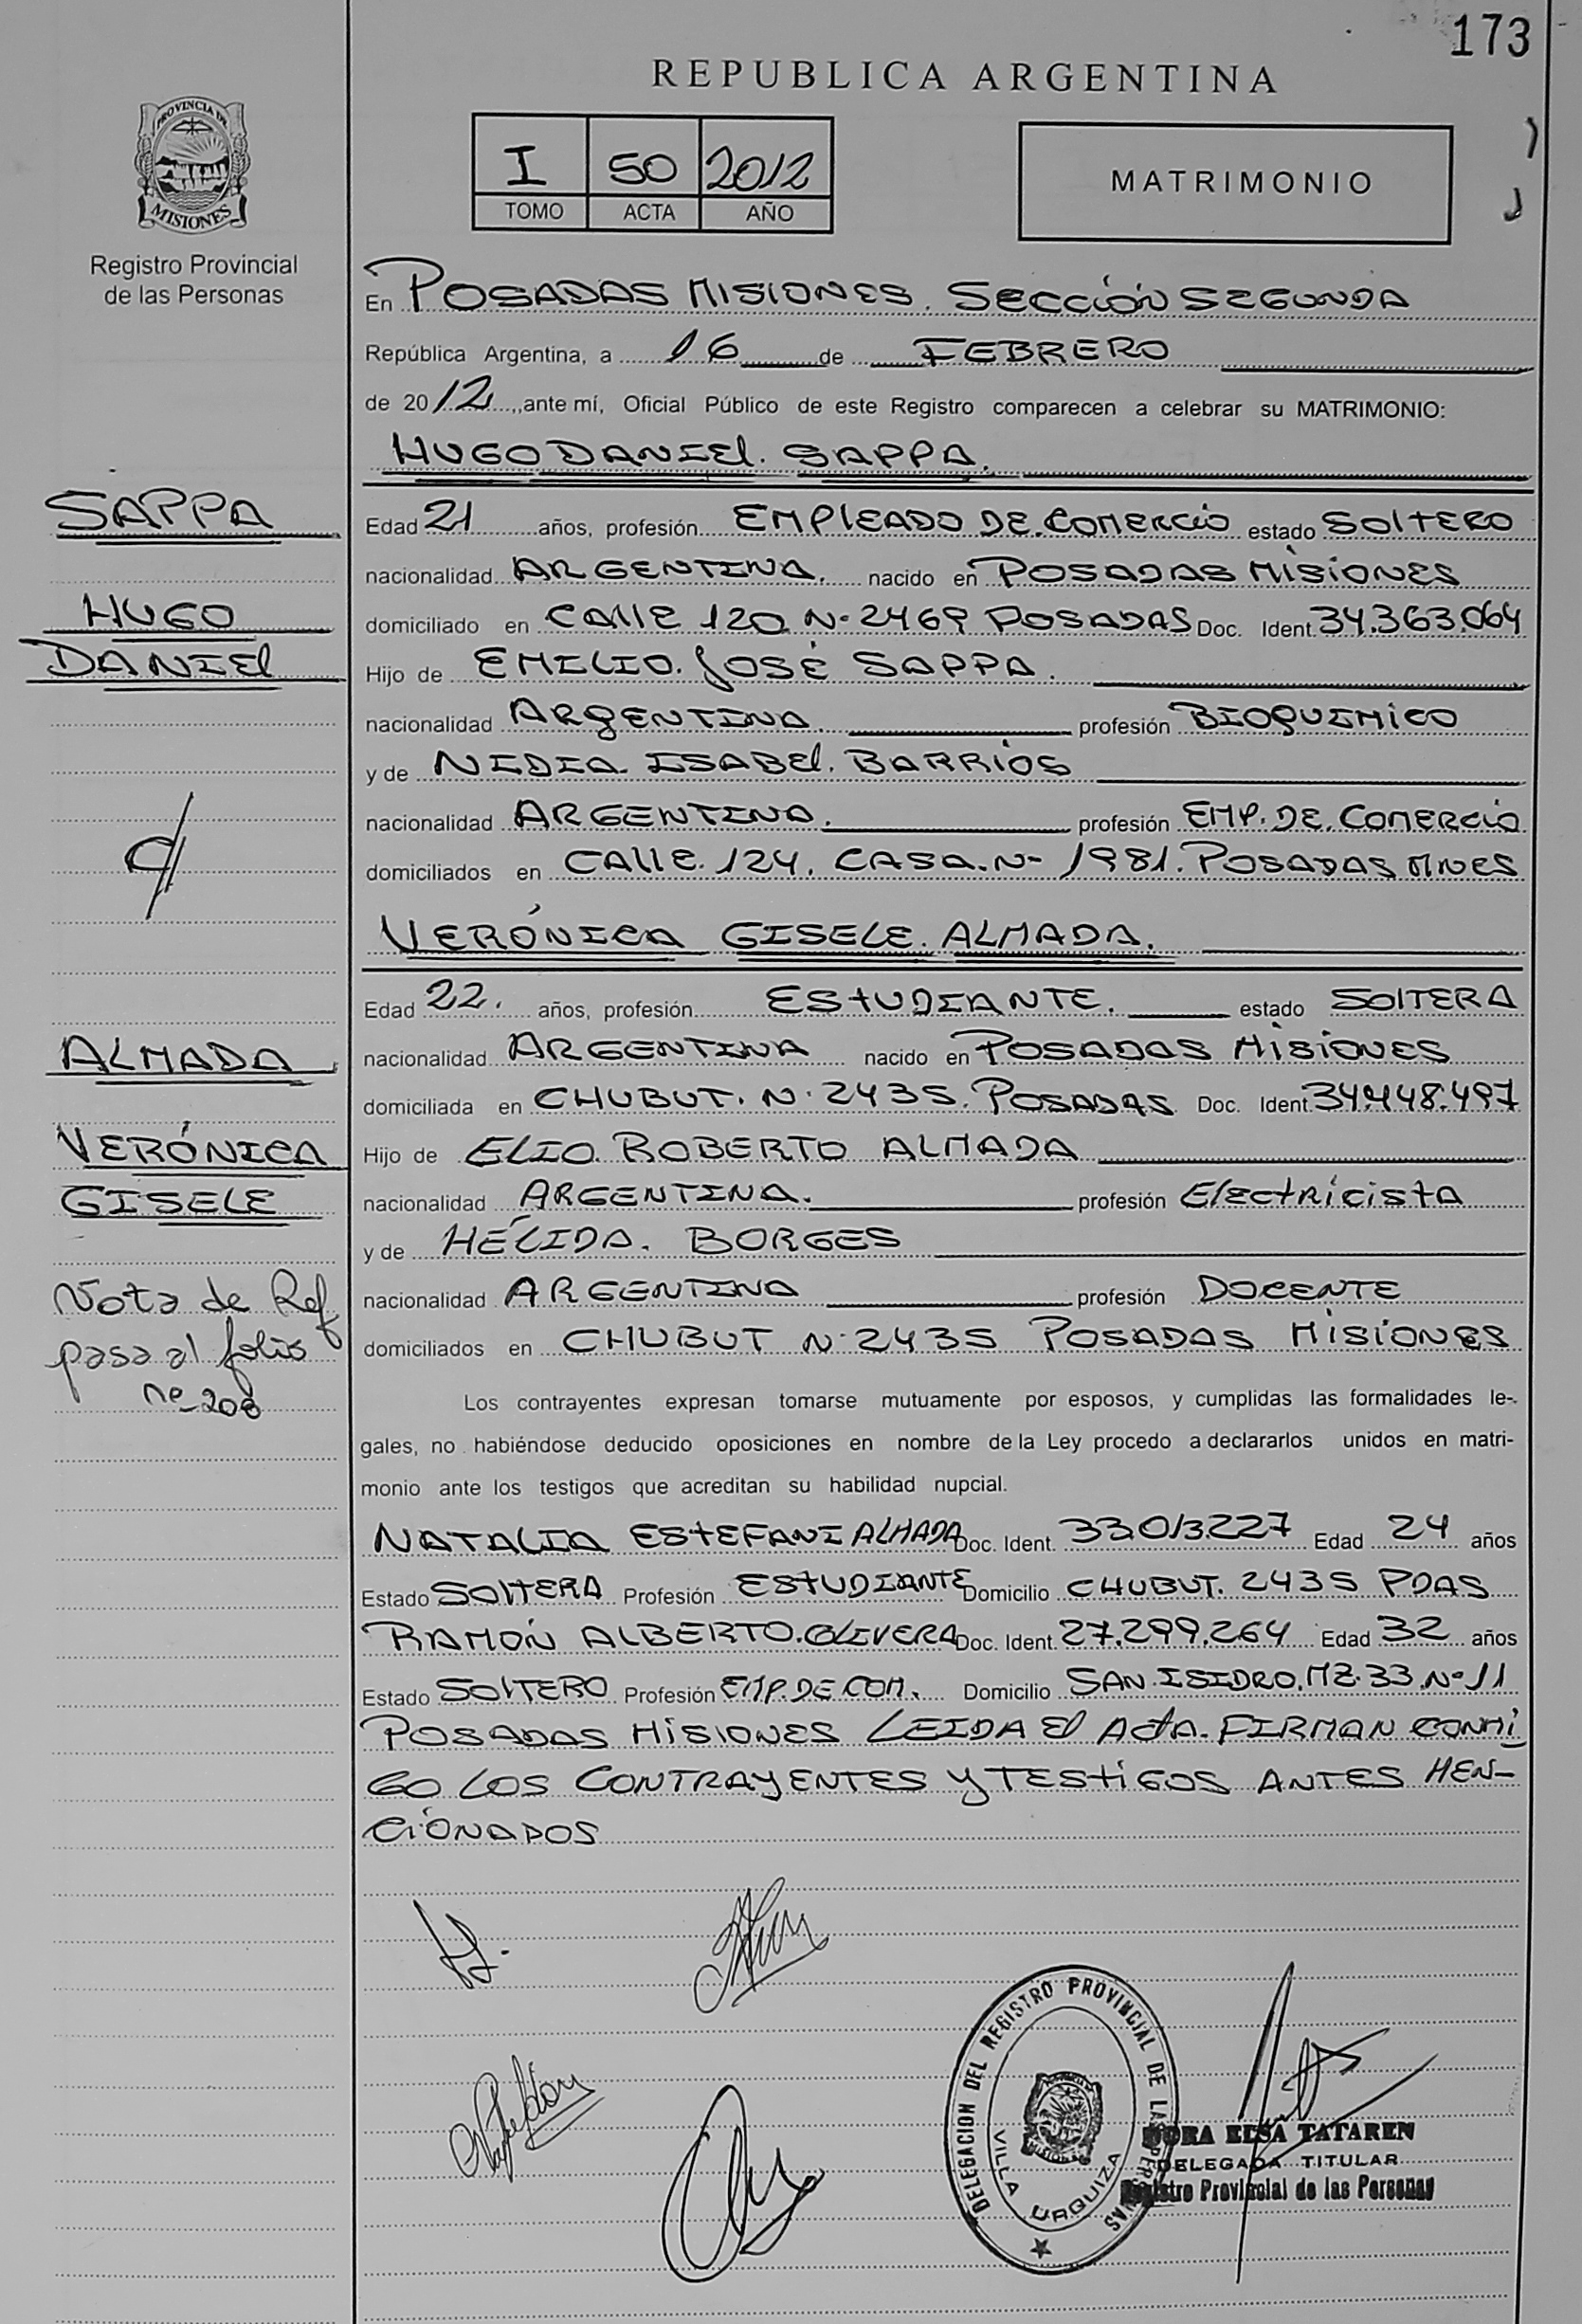 173
REPUBLICA ARGENTINA
PROVINCIA DE
MISIONES
Registro Provincial
de las Personas
I 50 2012
TOMO ACTA AÑO
MATRIMONIO
En POSADAS MISIONES. SECCIÓN SEGUNDA
República Argentina, a 16 de FEBRERO
de 2012, ante mí, Oficial Público de este Registro comparecen a celebrar su MATRIMONIO:
HUGO DANIEL. SAPPA.
SAPPA
HUGO
DANIEL
Edad 21 años, profesión EMPLEADO DE. COMERCIO estado SOLTERO
nacionalidad ARGENTINA. nacido en POSADAS MISIONES
domiciliado en CALLE 120 N. 2469 POSADAS Doc. Ident. 34.363.064
Hijo de EMILIO. JOSÉ SAPPA.
nacionalidad ARGENTINA. profesión BIOQUIMICO
y de NIDIA ISABEL. BARRIOS
nacionalidad ARGENTINA. profesión EMP. DE. COMERCIO
domiciliados en CALLE. 124. CASA. N- 1981. POSADAS MNES
VERÓNICA GISELE. ALMADA.
Edad 22. años, profesión ESTUDIANTE. estado SOLTERA
ALMADA
VERÓNICA
GISELE
nacionalidad ARGENTINA nacido en POSADAS MISIONES
domiciliada en CHUBUT. N. 2435. POSADAS Doc. Ident. 34.448.497
Hijo de ELIO. ROBERTO ALMADA
nacionalidad ARGENTINA. profesión ELECTRICISTA
y de HÉLIDA. BORGES
nacionalidad ARGENTINA profesión DOCENTE
domiciliados en CHUBUT N. 2435 POSADAS MISIONES
Nota de Ref.
pasa al folio
nº 208
Los contrayentes expresan tomarse mutuamente por esposos, y cumplidas las formalidades le-
gales, no habiéndose deducido oposiciones en nombre de la Ley procedo a declararlos unidos en matri-
monio ante los testigos que acreditan su habilidad nupcial.
NATALIA ESTEFANI ALMADA Doc. Ident. 33.013.227 Edad 24 años
Estado SOLTERA Profesión ESTUDIANTE Domicilio CHUBUT. 2435 PDAS
RAMÓN ALBERTO. OLIVERA Doc. Ident. 27.299.264 Edad 32 años
Estado SOLTERO Profesión EMP. DE COM. Domicilio SAN. ISIDRO. MZ. 33. Nº 11
POSADAS MISIONES LEIDA EL ACTA. FIRMAN CONMI
GO LOS CONTRAYENTES Y TESTIGOS ANTES MEN-
CIONADOS
DELEGACION DEL REGISTRO PROVINCIAL DE LAS PERSONAS
VILLA URQUIZA
MISIONES
ELSA TATAREN
DELEGADA TITULAR
Registro Provincial de las Personas